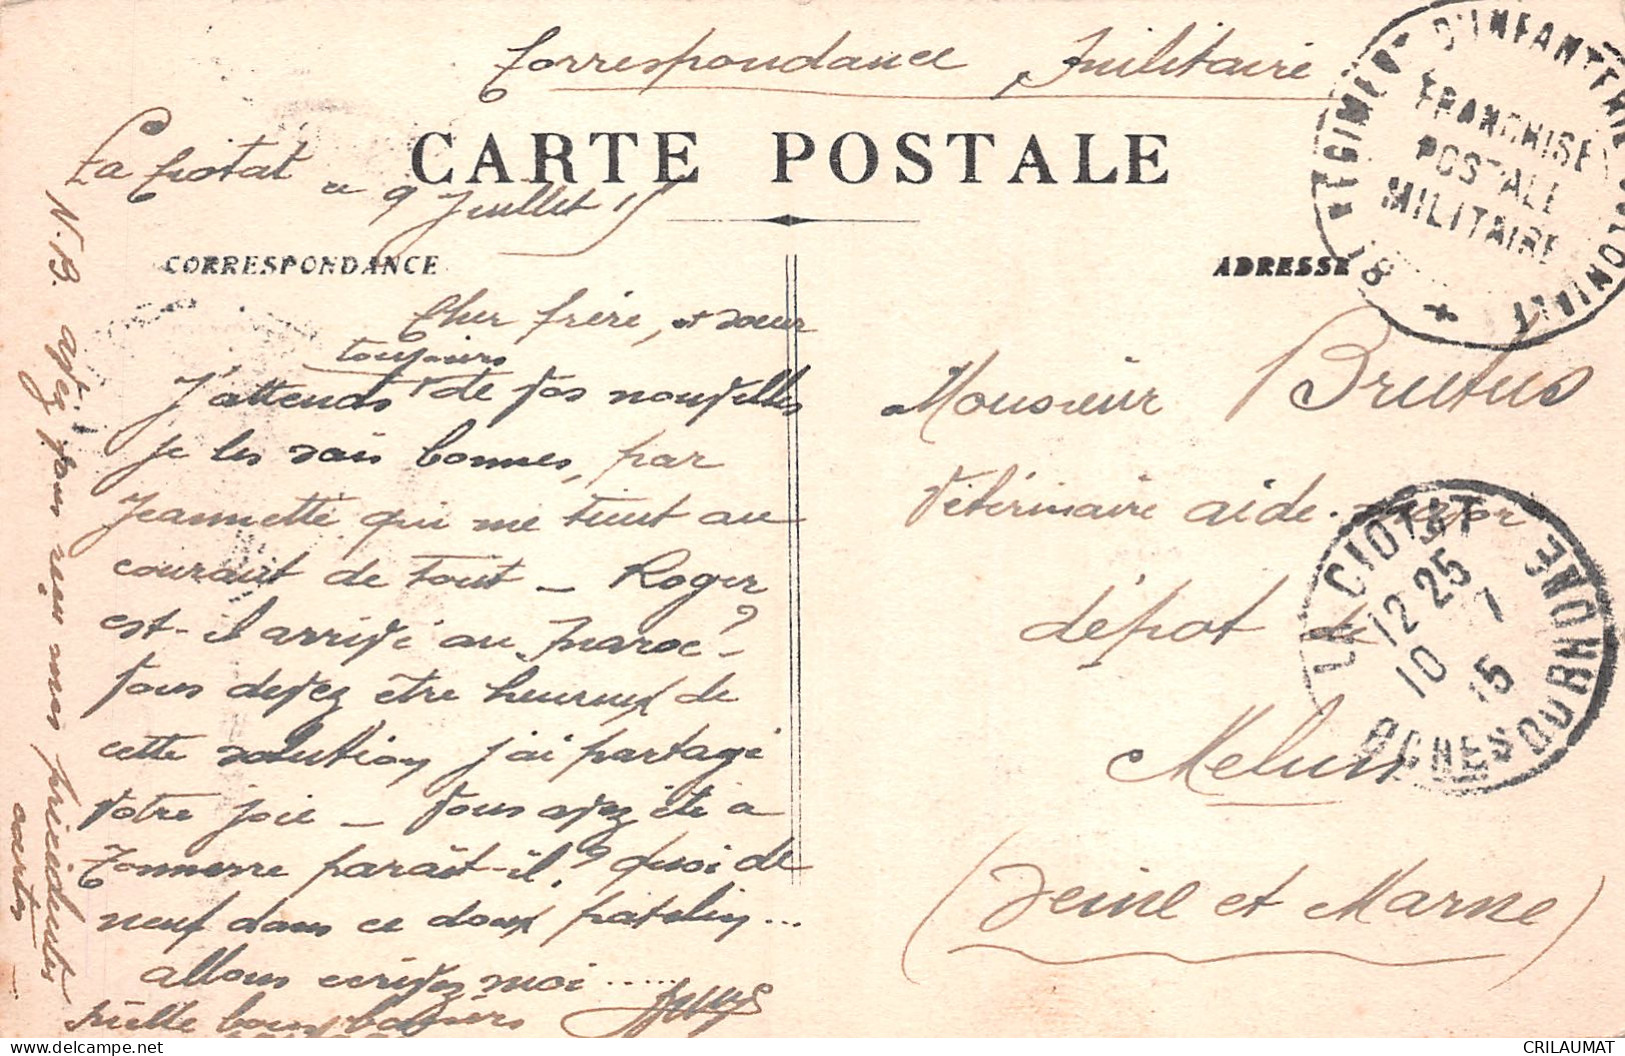 Correspondance Militaire
CARTE POSTALE
La Ciotat ce 9 Juillet 15
CORRESPONDANCE
Cher frère, et soeur
toujours
J'attends de vos nouvelles
je les sais bonnes, par
Jeannette qui me tient au
courant de tout - Roger
est-il arrivé au Maroc?
Vous devez être heureux de
cette solution, j'ai partagé
votre joie - Vous avez été à
Tonnerre paraît-il? quoi de
neuf dans ce doux patelin...
allons écrivez moi......
mille bons baisers
N.B. avez vous reçu mes précédentes
cartes
ADRESSE
Monsieur Brutus
Vétérinaire aide-major
dépôt de
Melun
(Seine et Marne)
8e RÉGIMENT D'INFANTERIE COLONIALE
FRANCHISE
POSTALE
MILITAIRE
LA CIOTAT
12 25
10 7
15
BCHES DU RHONE
CRILAUMAT